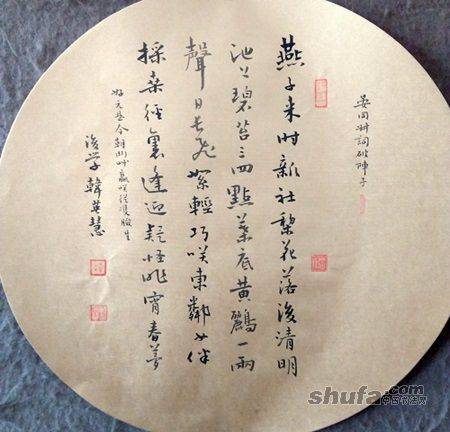 晏同叔詞破陣子
燕子来时新社棃花落後清明
池上碧苔三四點葉底黃鸝一兩
聲日長飛絮輕巧咲東鄰女伴
採桑徑裏逢迎疑怪昨宵春夢
好元是今朝鬥草贏咲從雙臉生
後学韓英慧
shufa.com
中国书法网